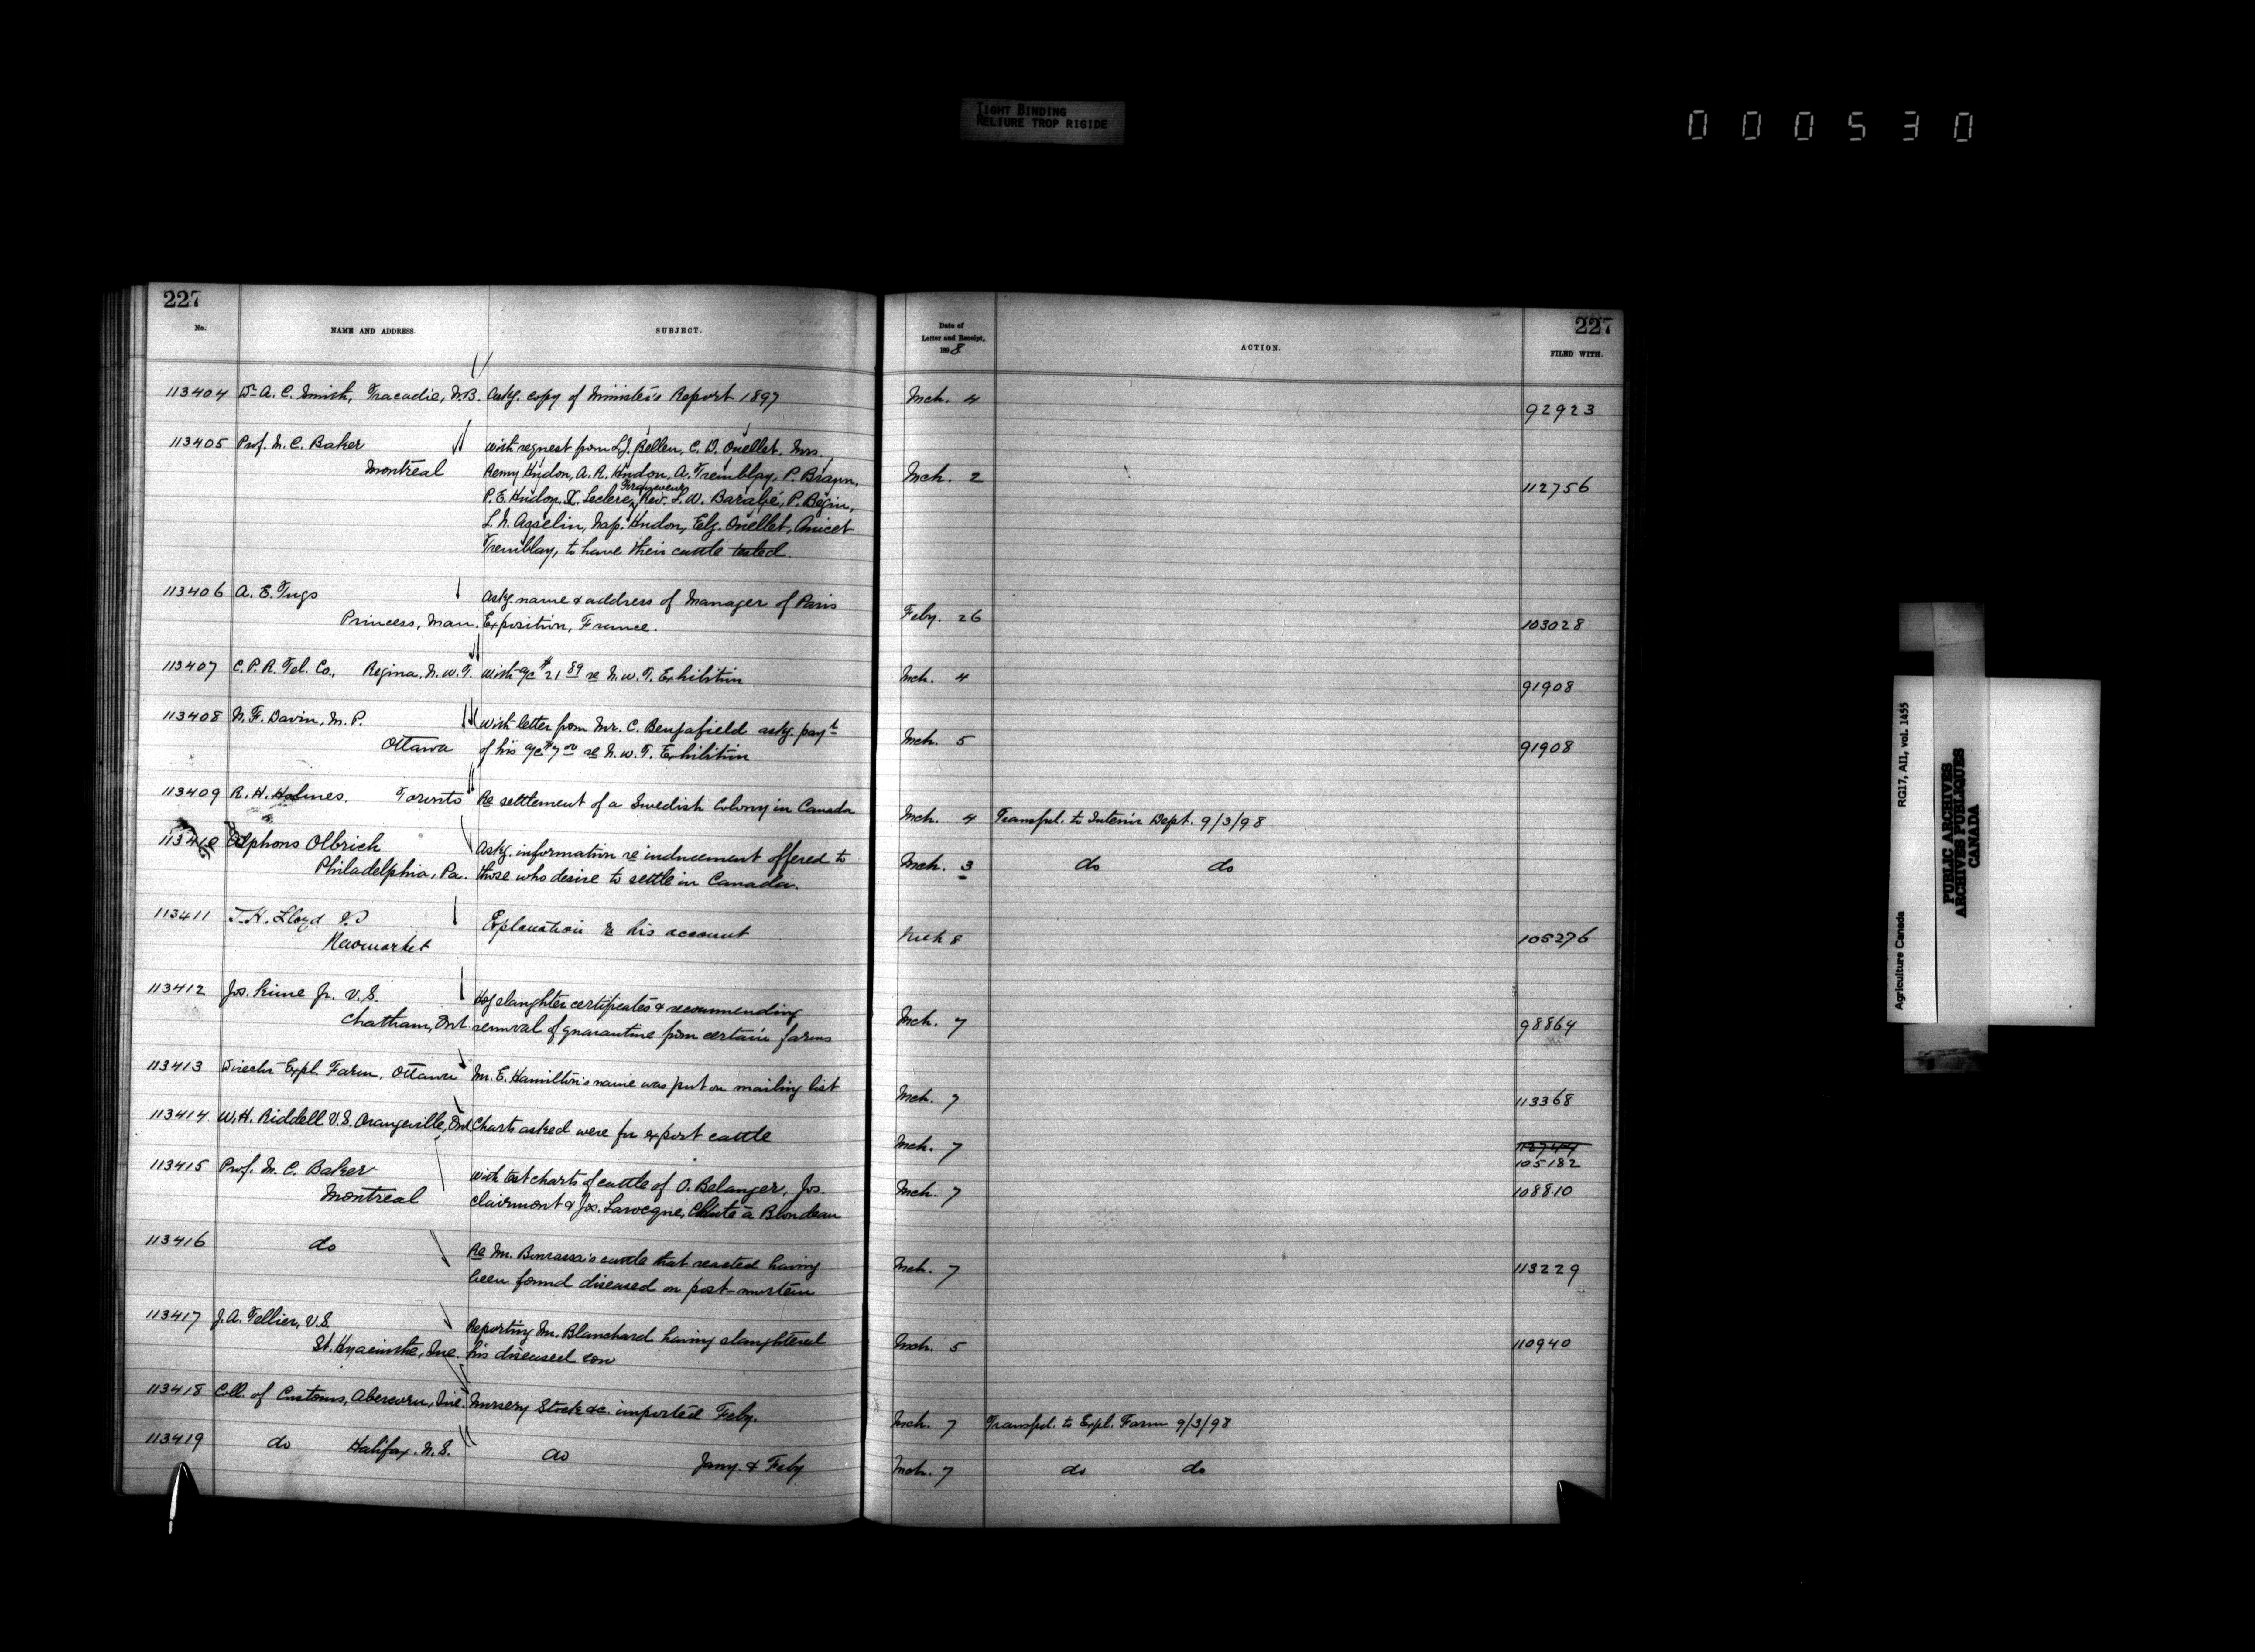 TIGHT BINDING
RELIURE TROP RIGIDE
000530
227
No.
NAME AND ADDRESS.
SUBJECT.
113404 Dr A. C. Smith, Tracadie, N.B. Askg. copy of Minister's Report 1897
113405 Prof. M. C. Baker
Montreal
With request from L.J. Belleu, C. D. Ouellet, Mrs.
Remy Hudon, A. R. Hudon, A. Tremblay, P. Braun,
P. E. Hudon, X. Leclerc, Rev. L. W. Barabé, P. Begin,
L. N. Asselin, Nap. Hudon, Elz. Ouellet, Amicet
Tremblay, to have their cattle tested.
113406 A. E. Tugs
Princess, Man.
Askg. name & address of Manager of Paris
Exposition, France.
113407 C. P. R. Tel. Co., Regina, N.W.T. With a/c $21 89 re N.W.T. Exhibition
113408 N. F. Davin, M.P.
Ottawa
With letter from Mr. C. Benfafield askg. payt
of his a/c $7 00 re N.W.T. Exhibition
113409 R. H. Holmes. Toronto Re settlement of a Swedish Colony in Canada
113410 Alphons Olbrich
Philadelphia, Pa.
Askg. information re inducement offered to
those who desire to settle in Canada.
113411 T. H. Lloyd V.S
Newmarket
Explanation re his account
113412 Jos. Kime Jr. V.S.
Chatham, Ont
Hog slaughter certificates & recommending
removal of quarantine from certain farms
113413 Director Expl. Farm, Ottawa Mr. E. Hamilton's name was put on mailing list
113414 W. H. Riddell V.S. Orangeville, Ont Charts asked were for export cattle
113415 Prof. M. C. Baker
Montreal
With test charts of cattle of O. Belanger, Jos.
Clairmont & Jos. Larocque, Chute à Blondeau
113416 do
Re Mr. Bourassa's cattle that reacted having
been found diseased on post-mortem
113417 J. A. Tellier, V.S.
St. Hyacinthe, Que.
Reporting Mr. Blanchard having slaughtered
his diseased cow
113418 Coll. of Customs, Abercorn, Que. Nursery Stock &c. imported Feby.
113419 do Halifax. N.S. do Jany. & Feby
227
Date of
Letter and Receipt,
1898
ACTION.
FILED WITH.
Mch. 4 92923
Mch. 2 112756
Feby. 26 103028
Mch. 4 91908
Mch. 5 91908
Mch. 4 Transfd. to Interior Dept. 9/3/98
Mch. 3 do do
Mch 8 105276
Mch. 7 98864
Mch. 7 113368
Mch. 7
105182
Mch. 7 108810
Mch. 7 113229
Mch. 5 110940
Mch. 7 Transfd. to Expl. Farm 9/3/98
Mch. 7 do do
Agriculture Canada RG17, AII, vol. 1455
PUBLIC ARCHIVES
ARCHIVES PUBLIQUES
CANADA